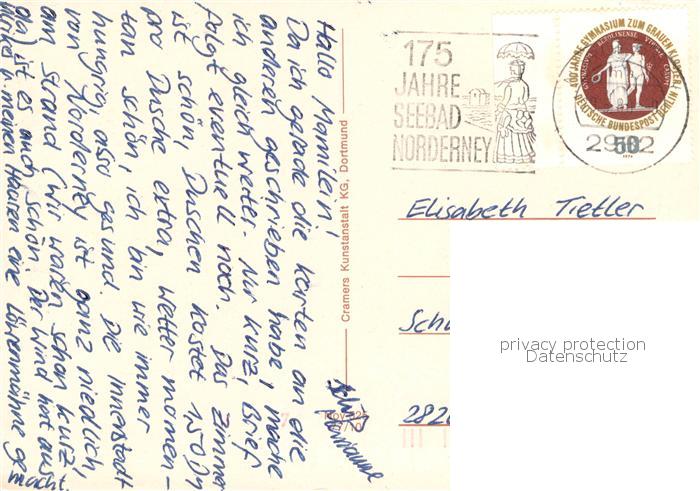 Hallo Mamilein!
Da ich gerade die Karten an die
anderen geschrieben habe, mache
ich gleich weiter. Nur kurz, Brief
folgt eventuell noch. Das Zimmer
ist schön, Duschen kostet 1,50 DM
pro Dusche extra, Wetter momen-
tan schön, ich bin wie immer
hungrig, also gesund. Die Innenstadt
von Norderney ist ganz niedlich,
am Strand (wir waren schon kurz
da) ist es auch schön. Der Wind hat aus
meinen Haaren eine Löwenmähne ge
macht.
Cramers Kunstanstalt KG, Dortmund
175
JAHRE
SEEBAD
NORDERNEY
400 JAHRE GYMNASIUM ZUM GRAUEN KLOSTER
DEUTSCHE BUNDESPOST BERLIN
50
1974
2982
Elisabeth Tietler
Schu
282
privacy protection
Datenschutz